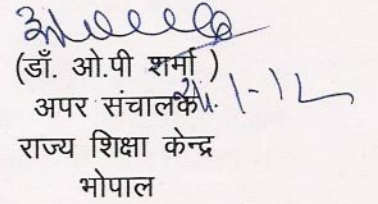 (डॉ. ओ.पी शर्मा )
अपर संचालक
राज्य शिक्षा केन्द्र
भोपाल